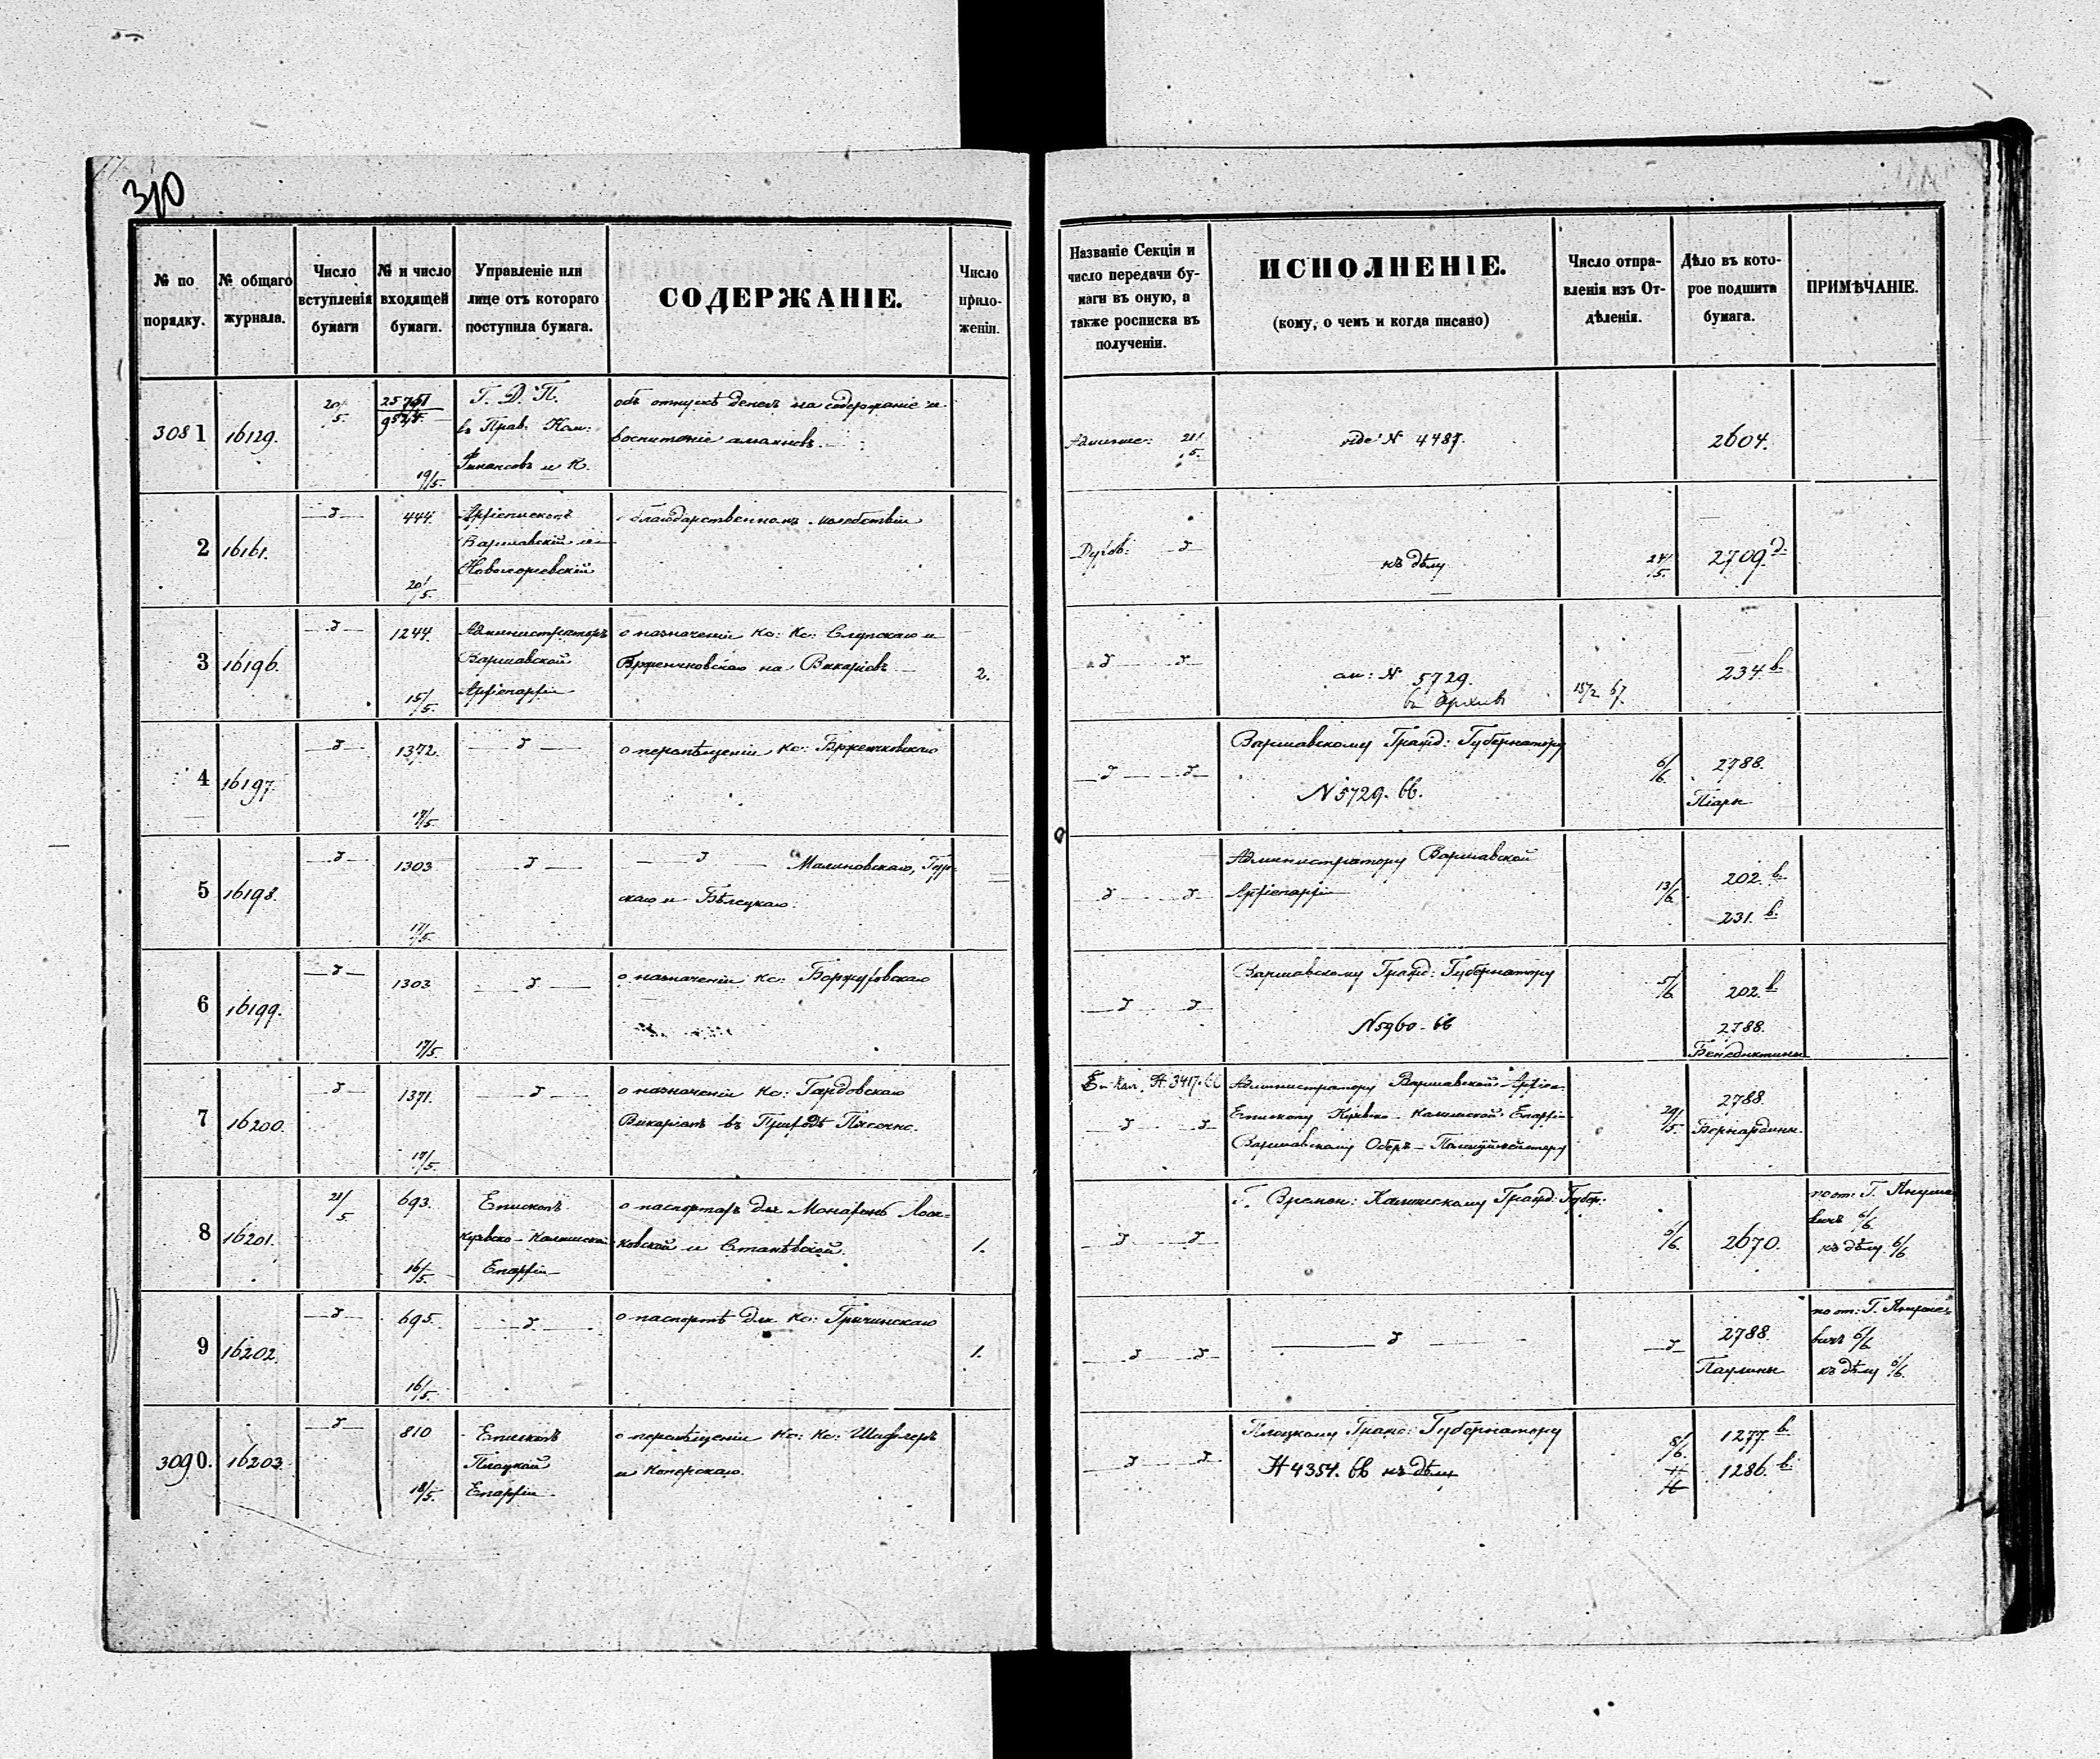 310
№ по порядку.
№ общаго журнала.
Число вступленія бумаги
№ и число входящей бумаги.
Управленіе или лице отъ котораго поступила бумага.
СОДЕРЖАНІЕ.
Число прило- женій.
Названіе Секціи и число передачи бу- маги въ оную, а также росписка въ полученіи.
ИСПОЛНЕНІЕ.
(кому, о чемъ и когда писано)
Число отпра- вленія изъ От- дѣленія.
Дѣло въ кото- рое подшита бумага.
ПРИМѢЧАНІЕ.
3081
16129.
20/5.
25751
19/5.
Г. Д. П.
въ Прав. Ком:
Финансовъ и К.
объ отпускѣ денегъ на содержаніе и
воспитаніе
21/5.
vide N 4487.
2604.
2
16161.
444.
20/5.
Архіепископъ
Варшавскій и
Новогеоргіевскій
благодарственномъ молебствіи
Духов:
къ дѣлу
24/5.
2709 д.
3
16196.
1244.
15/5.
Администраторъ
Варшавской
Архіепархіи
о назначеніи Кс: Кс: Слупскаго и
на Викаріевъ
2.
N 5729.
въ Архивъ
15/2 67.
234 в.
4
16197.
1372.
17/5.
о перемѣщеніи Кс:
Варшавскому Гражд: Губернатору
N 5729. 66.
6/6.
2788.
Піары
5
16198.
1303
17/5.
Малиновскаго, Гур-
скаго и Бѣлецкаго.
Администратору Варшавской
Архіепархіи
13/6.
202. в.
231. в.
6
16199.
1303.
17/5.
о назначеніи Кс:
Варшавскому Гражд: Губернатору
N 5960 - 66
5/6.
202. в.
2788.
Бенедиктины
7
16200.
1371.
17/5.
о назначеніи Кс: Гаудовскаго
Викаріемъ въ Приходѣ
N 3417. 66
Администратору Варшавской Архіеп.
Епископу Куявско - Калишской Епархіи
Варшавскому Оберъ - Полицiймейстеру
29/5.
2788.
Бернардины.
8
16201.
21/5
693.
16/5.
Епископъ
Куявско - Калишской
Епархіи
о паспортахъ для Монахинь
ковской и Станѣвской.
1.
Г. Времен: Калишскому Гражд: Губер:
5/6.
2670.
къ дѣлу 6/6
9
16202.
695.
16/5.
о паспортѣ для Кс: Гричинскаго
1.
2788.
Паулины
къ дѣлу 6/6.
3090.
16203
810
18/5.
Епископъ
Плоцкой
Епархіи
о перемѣщеніи Кс: Кс: Шафлеръ
и Коперскаго.
Плоцкому Гражд: Губернатору
N 4354. 66 къ дѣлу
8/6.
1277. в.
1286. в.